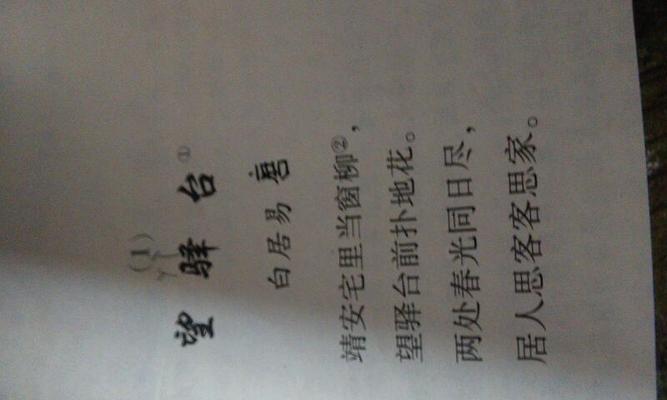 (1)
望驿台①
白居易 唐
靖安宅里当窗柳②，
望驿台前扑地花。
两处春光同日尽，
居人思客客思家。